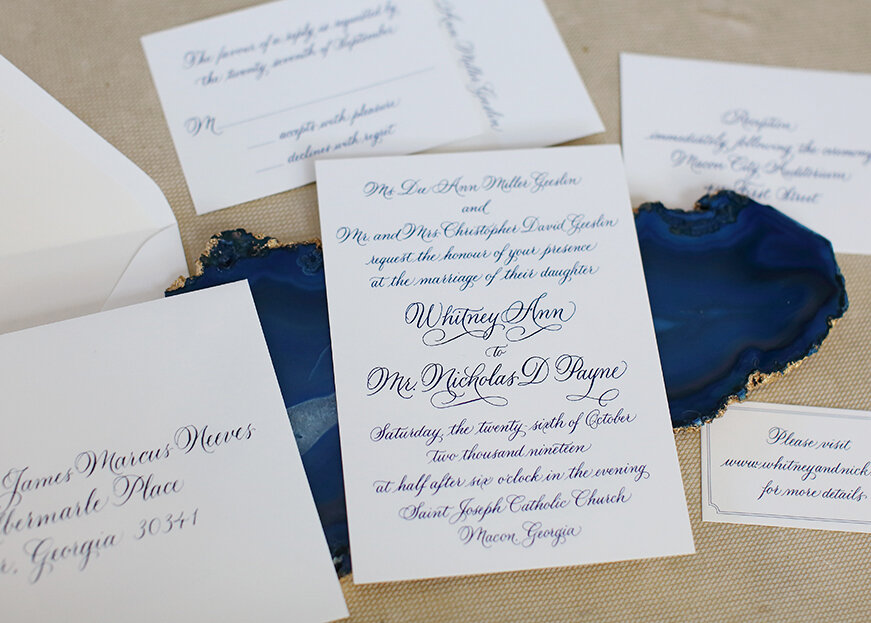 The favour of a reply is requested by
the twenty, seventh of September
M
accepts with pleasure
declines with regret
Ann Miller Geeslin
Reception
immediately following the ceremony
Macon City Auditorium
First Street
Ms. Dee Ann Miller Geeslin
and
Mr. and Mrs. Christopher David Geeslin
request the honour of your presence
at the marriage of their daughter
Whitney Ann
to
Mr. Nicholas D Payne
Saturday, the twenty-sixth of October
two thousand nineteen
at half after six o'clock in the evening
Saint Joseph Catholic Church
Macon, Georgia
James Marcus Neeves
Place
Georgia 30341
Please visit
www.whitneyandnick
for more details